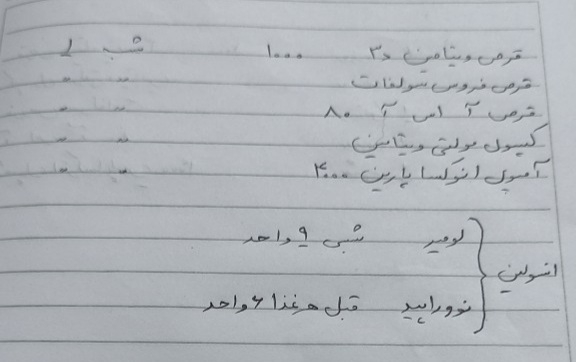 قرص ویتامین د۳ ۱۰۰۰ شب ۱
قرص فروس سولفات " "
قرص آ اس آ ۸۰ " "
کپسول مولتی ویتامین " "
آمپول انوکسا پارین ۴۰۰۰ " "
انسولین
لومیر شبی ۹ واحد
نووراپید قبل هر غذا ۶ واحد